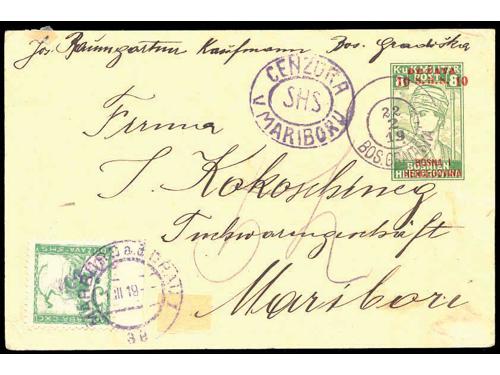 Jos. Baumgartner Kaufmann Bos. Gradiška
CENZURA
SHS
V MARIBORU
DRŽAVA
10 S.H.S. 10
BOSNA I
HERCEGOVINA
22
19
BOS. GRADIŠKA
Firma
Kokoschineg
Tuchwarengeschäft
Maribori
III 19
3B